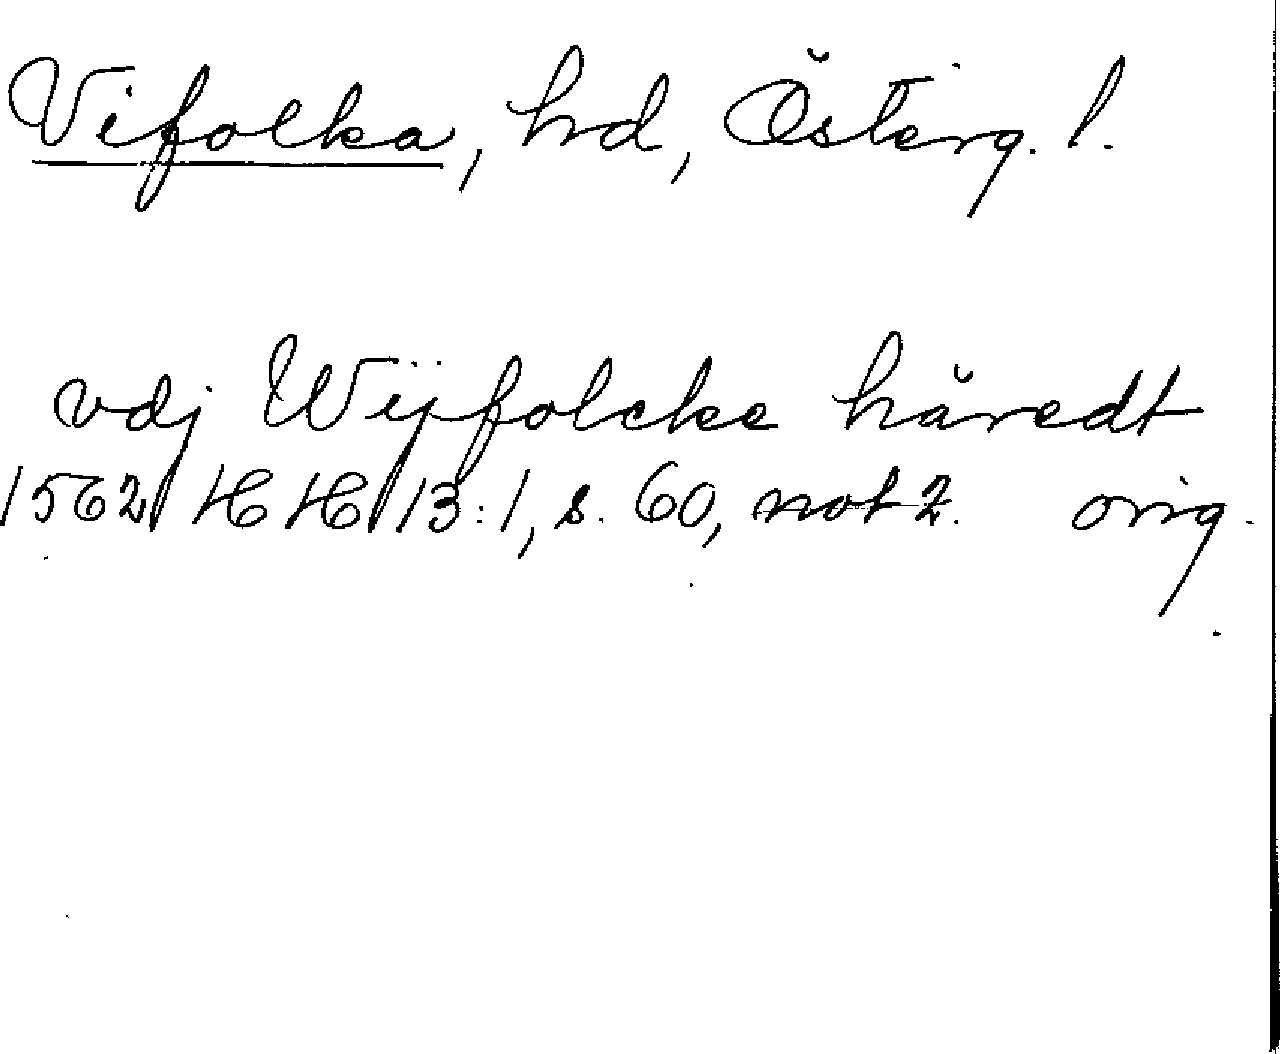 Vifolka, hd, Österg. l.
vdj Wijfolcke häredt
1562 HH 13:1, s. 60, not 2. orig.